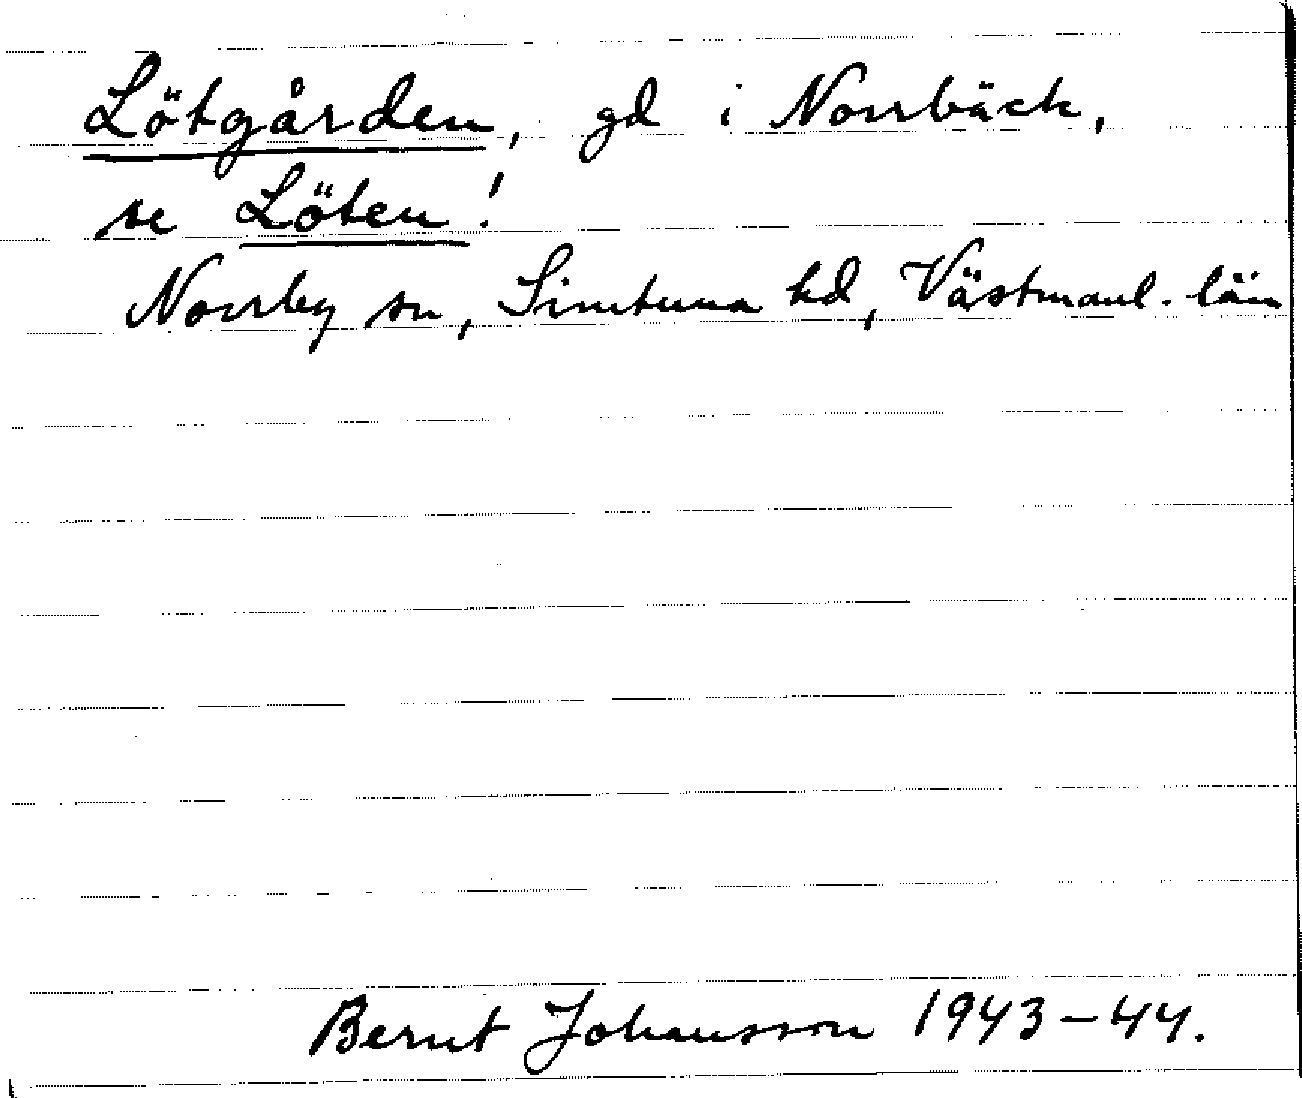 Lötgården, gd i Norrbäck,
se Löten!
Norrby sn, Simtuna hd, Västmanl. län
Bernt Johansson 1943-44.